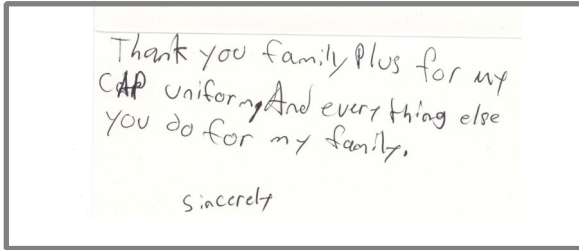 Thank you family Plus for my
CAP uniform, And every thing else
you do for my family.
Sincerely